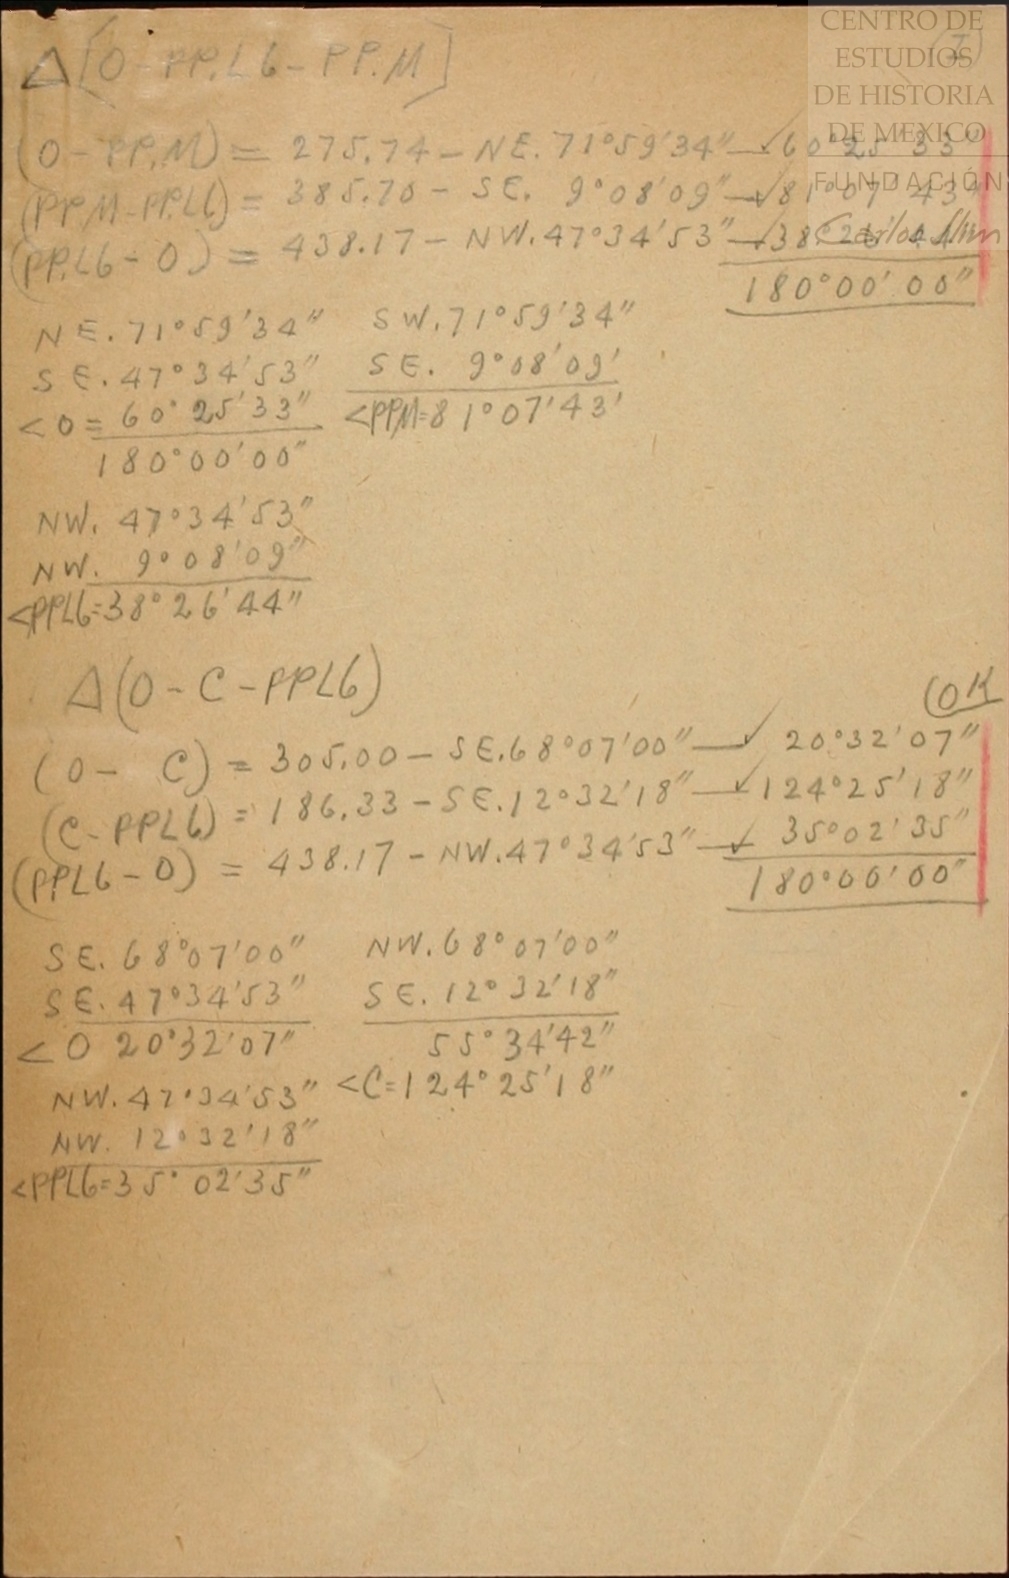 CENTRO DE
ESTUDIOS
DE HISTORIA
DE MEXICO
FUNDACIÓN
Carlos Slim
(I)
Δ[O-PP.L6-PP.M]
(O-PP.M) = 275.74 - NE. 71°59'34" — ✓ 60°25'33"
(PP.M-PP.L6) = 385.70 - SE. 9°08'09" — ✓ 81°07'43"
(PP.L6-O) = 438.17 - NW. 47°34'53" — ✓ 38°26'44"
180°00'00"
NE. 71°59'34"
SE. 47°34'53"
<O= 60°25'33"
180°00'00"
SW. 71°59'34"
SE. 9°08'09'
<PPM=81°07'43'
NW. 47°34'53"
NW. 9°08'09"
<PPL6=38°26'44"
Δ(O-C-PPL6)
(OK
(O- C) = 305.00 - SE. 68°07'00" — ✓ 20°32'07"
(C-PPL6) = 186.33 - SE. 12°32'18" — ✓ 124°25'18"
(PPL6-O) = 438.17 - NW. 47°34'53" — ✓ 35°02'35"
180°00'00"
SE. 68°07'00"
SE. 47°34'53"
<O 20°32'07"
NW. 68°07'00"
SE. 12°32'18"
55°34'42"
<C=124°25'18"
NW. 47°34'53"
NW. 12°32'18"
<PPL6=35°02'35"